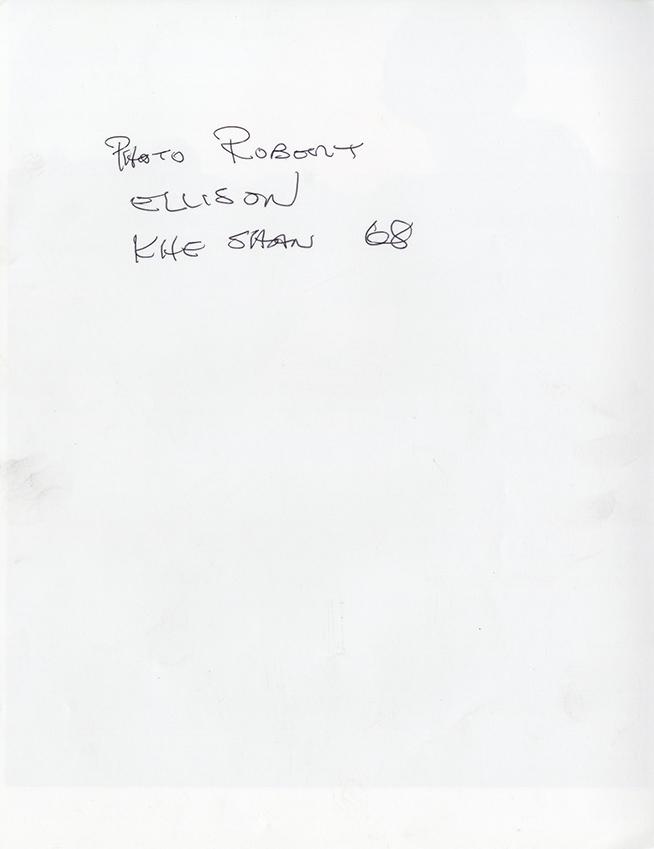 PHOTO ROBERT
ELLISON
KHE SHAN 68